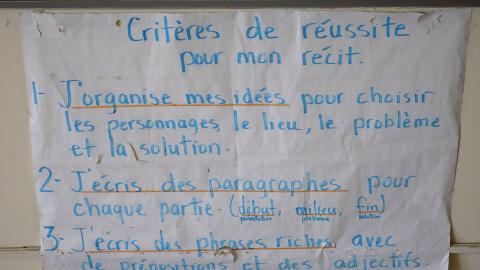 Critères de réussite
pour mon récit.
1- J'organise mes idées pour choisir
les personnages, le lieu, le problème
et la solution.
2- J'écris des paragraphes pour
chaque partie. (début, milieu, fin)
présentation problème solution
3- J'écris des phrases riches, avec
de prépositions et des adjectifs.